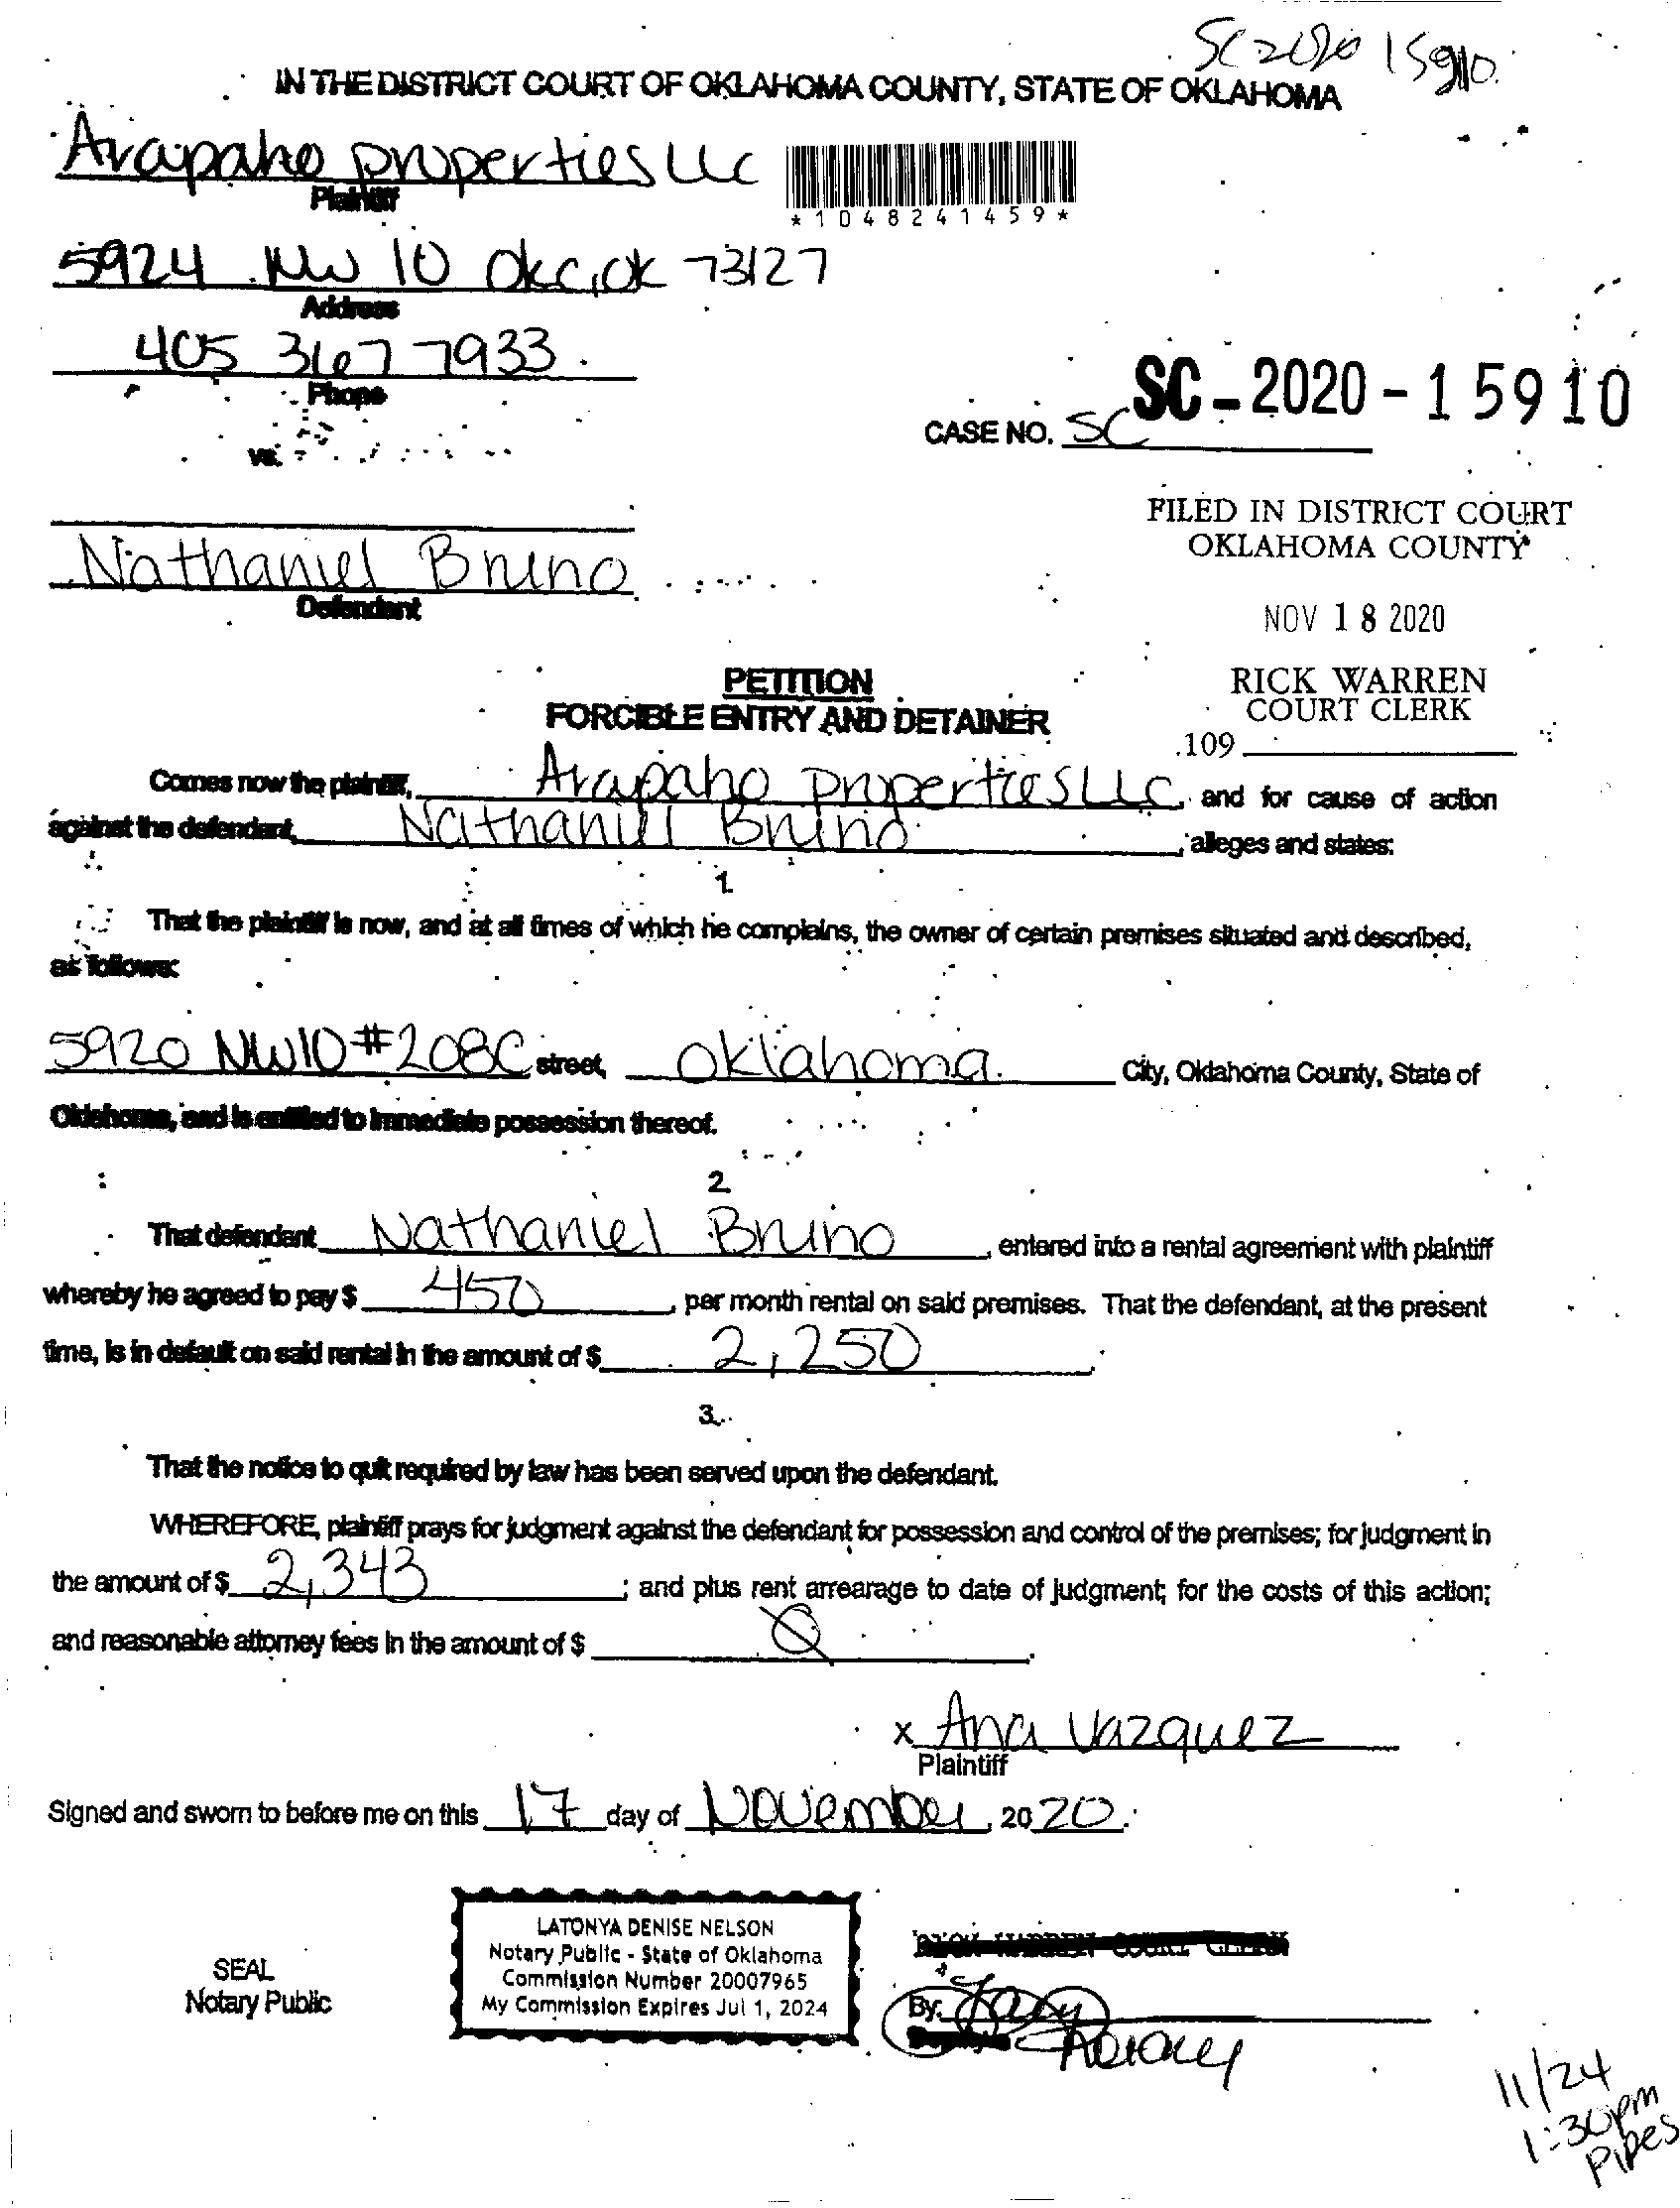 SC 2020 15910
IN THE DISTRICT COURT OF OKLAHOMA COUNTY, STATE OF OKLAHOMA
Arapaho properties LLC
Plaintiff
*1048241459*
5924 NW 10 OKC, OK 73127
Address
405 367 7933
Phone
SC-2020-15910
CASE NO. SC
vs.
FILED IN DISTRICT COURT
OKLAHOMA COUNTY
Nathaniel Bruno
Defendant
NOV 18 2020
PETITION
RICK WARREN
FORCIBLE ENTRY AND DETAINER
COURT CLERK
109
Comes now the plaintiff, Arapaho properties LLC, and for cause of action
against the defendant, Nathaniel Bruno, alleges and states:
1.
That the plaintiff is now, and at all times of which he complains, the owner of certain premises situated and described,
as follows:
5920 NW 10 #208C street, Oklahoma City, Oklahoma County, State of
Oklahoma, and is entitled to immediate possession thereof.
2.
That defendant Nathaniel Bruno, entered into a rental agreement with plaintiff
whereby he agreed to pay $ 450, per month rental on said premises. That the defendant, at the present
time, is in default on said rental in the amount of $ 2,250.
3.
That the notice to quit required by law has been served upon the defendant.
WHEREFORE, plaintiff prays for judgment against the defendant for possession and control of the premises; for judgment in
the amount of $ 2,343; and plus rent arrearage to date of judgment; for the costs of this action;
and reasonable attorney fees in the amount of $ 0.
x Ana Vazquez
Plaintiff
Signed and sworn to before me on this 17 day of November, 2020.
LATONYA DENISE NELSON
Notary Public - State of Oklahoma
Commission Number 20007965
My Commission Expires Jul 1, 2024
RICK WARREN COURT CLERK
SEAL
Notary Public
By:
Notary
11/24
1:30pm
Pipes